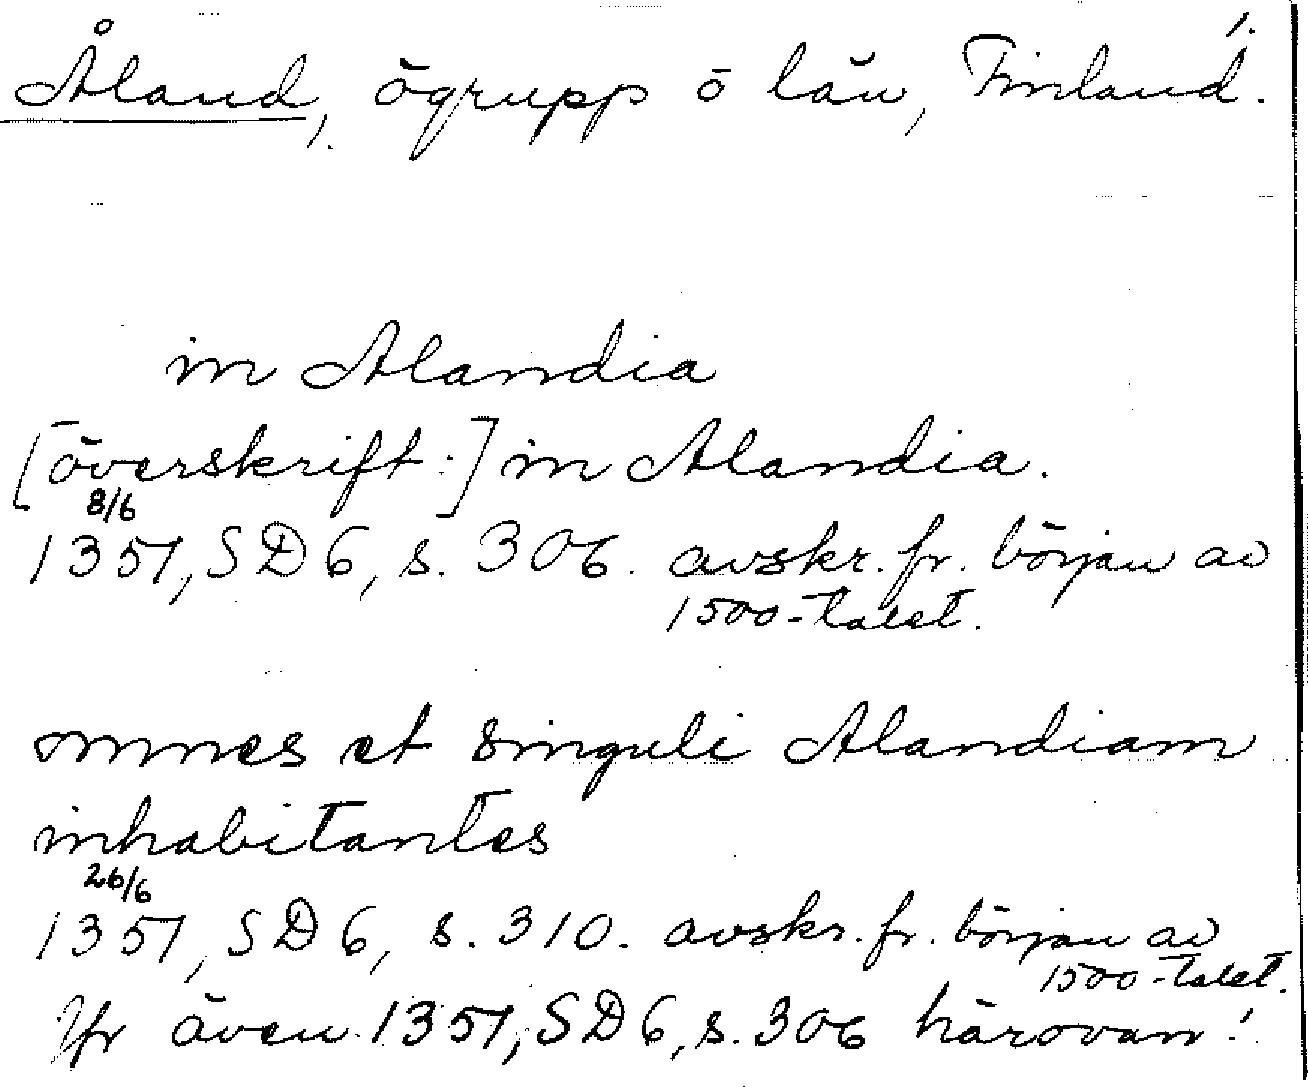 Åland, ögrupp o län, Finland. 1.
in Alandia
[överskrift:] in Alandia.
8/6
1351, SD 6, s. 306. avskr. fr. början av
1500-talet.
omnes et singuli Alandiam
inhabitantes
26/6
1351, SD 6, s. 310. avskr. fr. början av
1500-talet.
Jfr även 1351, SD 6, s. 306 härovan!